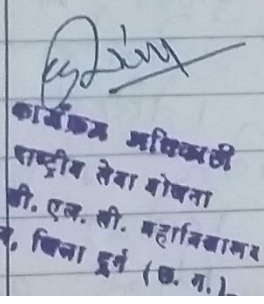 कार्यक्रम अधिकारी
राष्ट्रीय सेवा योजना
सी. एल. सी. महाविद्यालय
जिला दुर्ग (छ. ग.)